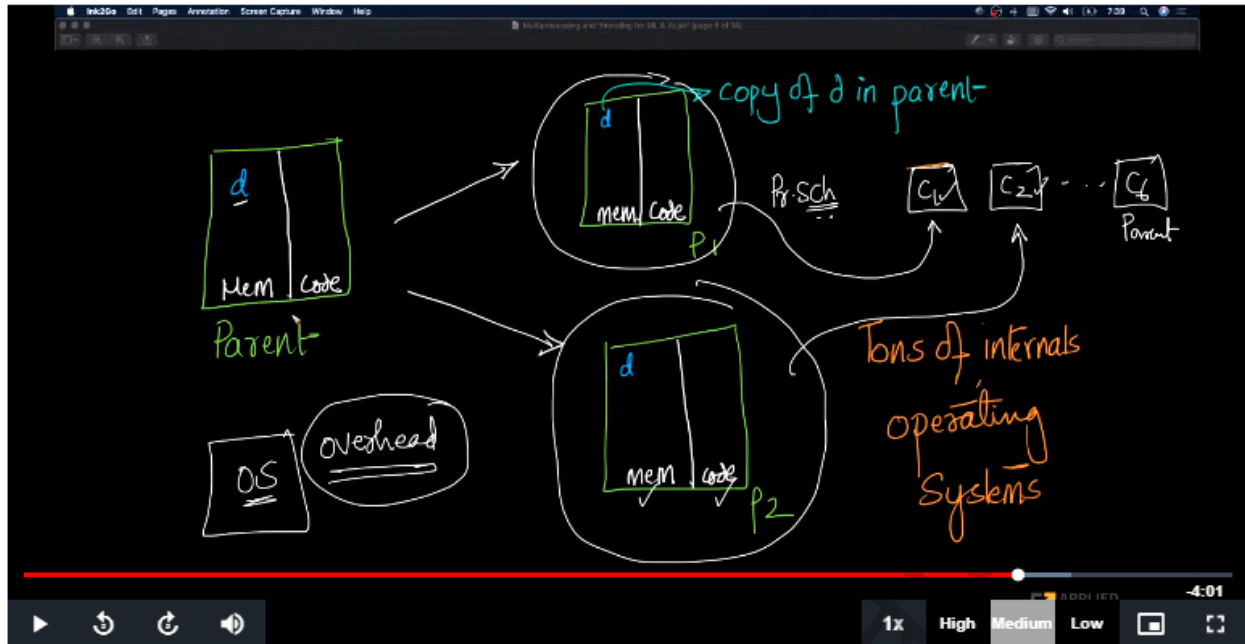 Ink2Go Edit Pages Annotation Screen Capture Window Help
7:39
Multiprocessing and threading for ML & AI.pdf (page 5 of 14)
Search
copy of d in parent
d
Mem Code
P1
d
Mem Code
Parent
Pr. Sch
C1 C2 ... C6
Parent
OS overhead
d
Mem Code
P2
Tons of internals
operating
Systems
APPLIED
-4:01
5 5 1x High Medium Low